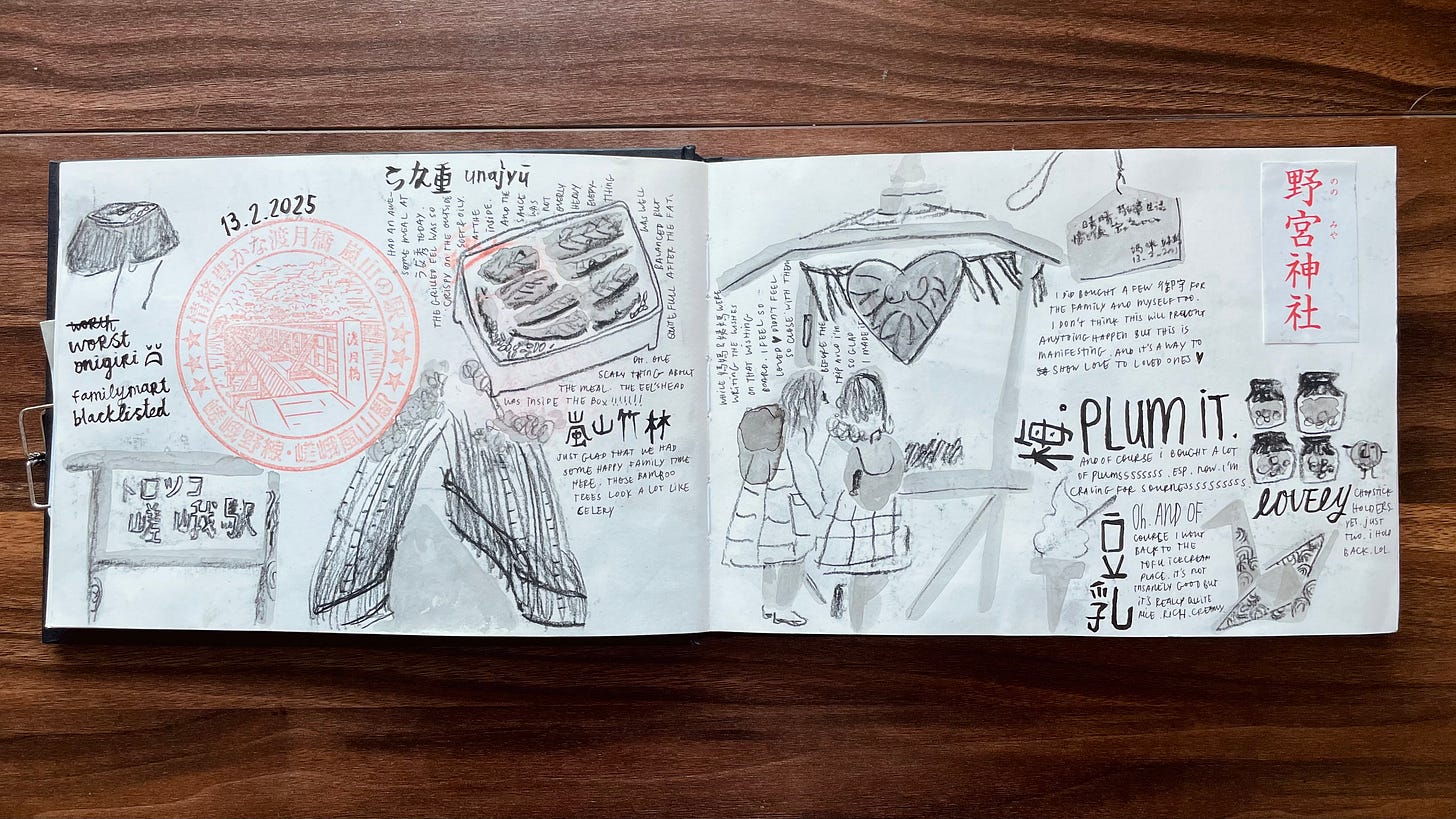 13.2.2025
worth
worst
onigiri
familymart
blacklisted
情緒豊かな渡月橋 嵐山の
渡月橋
嵯峨野線・嵯峨嵐山駅
トロッコ
嵯峨駅
う な 重 unajyū
HAD AN AWE-
SOME MEAL AT
TODAY.
THE GRILLED EEL WAS SO
CRISPY ON THE OUTSIDE
SOFT & OILY
INSIDE.
AND THE
SAUCE
WAS
NOT
OVERLY
HEAVY
EVERY-
THING
WAS WELL
BALANCED BUT
QUITE FULL AFTER THE FAT.
OH. ONE
SCARY THING ABOUT
THE MEAL. THE EEL'S HEAD
WAS INSIDE THE BOX!!!!!!!
嵐山竹林
JUST GLAD THAT WE HAD
SOME HAPPY FAMILY TIME
HERE. THOSE BAMBOO
TREES LOOK A LOT LIKE
CELERY
WERE
WRITING THE WISHES
ON THAT WISHING
BOARD. I FEEL SO
LOVED ♥ DIDN'T FEEL
SO CLOSE WITH THEM
BEFORE THE
TRIP AND I'M
SO GLAD
I MADE IT
野宮神社
のの みや
I DID BOUGHT A FEW 御守 FOR
THE FAMILY AND MYSELF TOO.
I DON'T THINK THIS WILL PREVENT
ANYTHING HAPPEN BUT THIS IS
MANIFESTING. AND IT'S A WAY TO
SHOW LOVE TO LOVED ONES ♥
梅. PLUM IT.
AND OF COURSE I BOUGHT A LOT
OF PLUMSSSSSSS. ESP. NOW. I'M
CRAVING FOR SOURNESSSSSSSSS.
LOVELY
CHOPSTICK
HOLDERS.
YET. JUST
TWO. I HOLD
BACK. LOL.
Oh. AND OF
COURSE I WENT
BACK TO THE
TOFU ICECREAM
PLACE. IT'S NOT
INSANELY GOOD BUT
IT'S REALLY QUITE
NICE. RICH. CREAMY